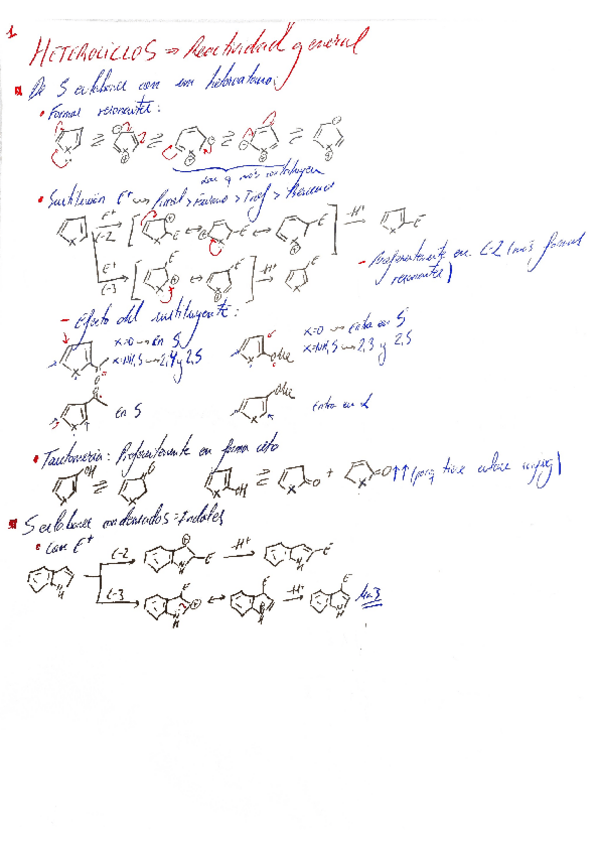 1
HETEROCICLOS ⇒ Reactividad general
De 5 eslabones con un heteroátomo:
• Formas resonantes:
Los q más contribuyen
• Sustitución E⁺ ⇝ Pirrol > Furano > Tiof > Benceno
E⁺ C-2 -H⁺
E⁺ C-3 -H⁺
- Preferentemente en C-2 (más formas resonantes)
- Efecto del sustituyente:
X=O ⇝ en 5
X=NH,S ⇝ 2,4 y 2,5
X=O ⇝ entra en 5
X=NH,S ⇝ 2,3 y 2,5
OMe
en 5
OMe
entra en 2
• Tautomería: Preferentemente en forma ceto
OH ⇌ O
OH ⇌ =O + =O ↑↑ (porq tiene enlace conjug)
5 eslabones condensados = Indoles
• Con E⁺
C-2 -H⁺
C-3 -H⁺